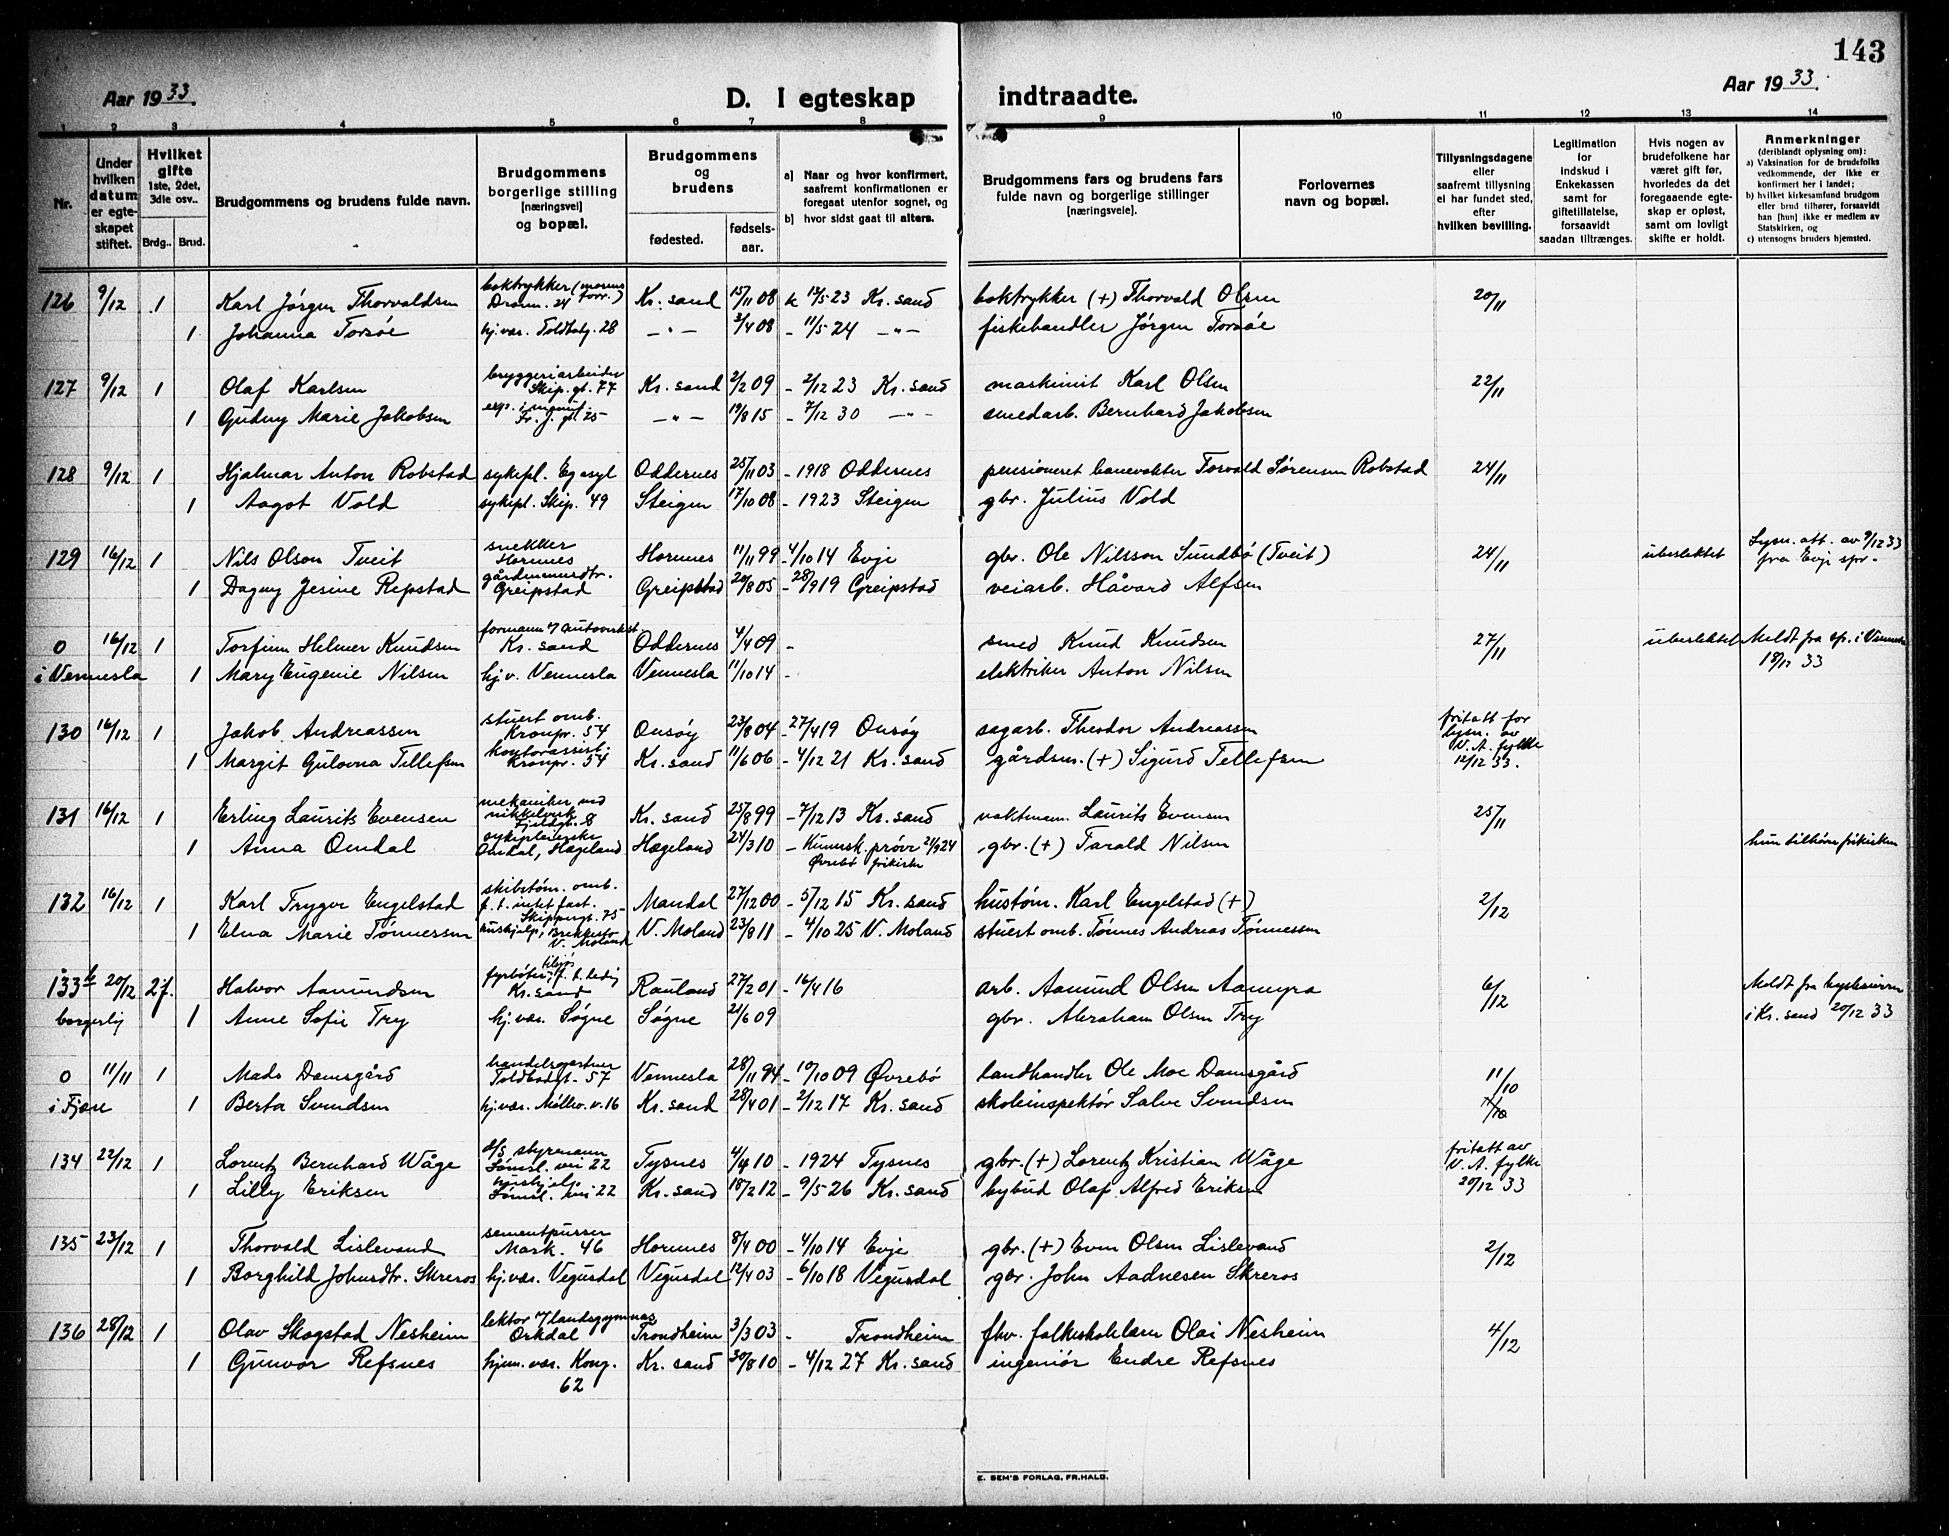 143
Aar 1933. D. I egteskap indtraadte. Aar 1933.
1 2 3 4 5 6 7 8 9 10 11 12 13 14
Nr.
Under hvilken datum er egte-skapet stiftet.
Hvilket gifte 1ste, 2det, 3die osv..
Brdg.. Brud.
Brudgommens og brudens fulde navn.
Brudgommens borgerlige stilling [næringsvei] og bopæl.
Brudgommens og brudens
fødested. fødsels-aar.
a) Naar og hvor konfirmert, saafremt konfirmationen er foregaat utenfor sognet, og
b) hvor sidst gaat til alters.
Brudgommens fars og brudens fars fulde navn og borgerlige stillinger [næringsveie].
Forlovernes navn og bopæl.
Tillysningsdagene eller saafremt tillysning ei har fundet sted, efter hvilken bevilling.
Legitimation for Indskud i Enkekassen samt for giftetillatelse, forsaavidt saadan tiltrænges.
Hvis nogen av brudefolkene har været gift før, hvorledes da det foregaaende egte-skap er opløst, samt om lovligt skifte er holdt.
Anmerkninger (deriblandt oplysning om):
a) Vaksination for de brudefolks vedkommende, der ikke er konfirmert her i landet;
b) hvilket kirkesamfund brudgom eller brud tilhører, forsaavidt han [hun] ikke er medlem av Statskirken, og
c) utensogns bruders hjemsted.
126 9/12 1 Karl Jørgen Thorvaldsen boktrykker Dronn. 24 Kr. sand 15/11 08 k 13/5 23 Kr. sand boktrykker (+) Thorvald Olsen 20/11
1 Johanna Torsøe hj. vær. Toldbotg. 28 - " - 3/4 08 - 11/5 24 - " - fiskehandler Jørgen Torsøe
127 9/12 1 Olaf Karlsen bryggeriarbeider Skip. gt. 77 Kr. sand 2/2 09 - 2/12 23 Kr. sand maskinist Karl Olsen 22/11
1 Gudny Marie Jakobsen Fr. J. gt. 25 - " - 19/8 15 - 7/12 30 - " - smedarb. Bernhard Jakobsen
128 9/12 1 Hjalmar Anton Robstad sykepl. Eg asyl Oddernes 25/11 03 - 1918 Oddernes pensioneret banevokter Torvald Sørensen Robstad 24/11
1 Aagot Vold sykepl. Skip. 49 Steigen 17/10 08 - 1923 Steigen gbr. Julius Vold
129 16/12 1 Nils Olson Tveit snekker Hornnes Hornnes 11/11 99 - 4/10 14 Evje gbr. Ole Nilsson Sundbø (Tveit) 24/11 ubeslektet Lysn. att. av 9/12 33 fra Evje spr.
1 Dagny Jesine Repstad Greipstad Greipstad 20/8 05 - 28/9 19 Greipstad veiarb. Håvard Alfsen
0 i Vennesla 16/12 1 Torfinn Helmer Knudsen formann v/ autoverkst. Kr. sand Oddernes 4/4 09 - smed Knud Knudsen 27/11 ubeslektet Meldt fra sp. i Vennesla 18/12 33
1 Mary Eugenie Nilsen hj. v. Vennesla Vennesla 11/10 14 - elektriker Anton Nilsen
130 16/12 1 Jakob Andreassen stuert omb. Kronpr. 54 Onsøy 23/8 04 - 27/4 19 Onsøy sagarb. Theodor Andreassen fritatt for lysn. av V. A. fylke 12/12 33.
1 Margit Gulovna Tellefsen kontorassist. Kronpr. 54 Kr. sand 11/6 06 - 4/12 21 Kr. sand gårdsm. (+) Sigurd Tellefsen
131 16/12 1 Erling Laurits Evensen mekaniker ved nikkelverk Fjeldgt. 8 Kr. sand 25/8 99 - 7/12 13 Kr. sand vaktmann Laurits Evensen 25/11
1 Anna Omdal sykepleierske Omdal, Hægeland Hægeland 24/3 10 - Kunnsk. prøve 21/9 24 Øvrebø frikirke gbr. (+) Tarald Nilsen hun tilhører frikirken
132 16/12 1 Karl Trygve Engelstad skibstøm. omb. f. t. intet fast. Skippergt. 75 Mandal 27/12 00 - 5/12 15 Kr. sand hustøm. Karl Engelstad (+) 2/12
1 Elna Marie Tønnessen hushjelp, V. Moland V. Moland 23/8 11 - 4/10 25 V. Moland stuert omb. Tønnes Andreas Tønnessen
133 b borgerlig 20/12 2 f. Halvor Aamundsen fyrbøter, f. t. ledig Kr. sand Rauland 27/2 01 - 16/4 16 arb. Aamund Olsen Aamyra 6/12 Meldt fra byskriveren i Kr. sand 20/12 33
1 Anne Sofie Try hj. vær. Søgne Søgne 21/6 09 gbr. Abraham Olsen Try
0 i Fjære 11/11 1 Mads Damsgård handelsgartner Toldbodgt. 57 Vennesla 28/11 94 - 10/10 09 Øvrebø landhandler Ole Moe Damsgård 11/10
1 Berta Svendsen hj. vær. Møllev. v. 16 Kr. sand 28/4 01 - 2/12 17 Kr. sand skoleinspektør Salve Svendsen
134 22/12 1 Lorentz Bernhard Wåge styrmann Tømsl. vei 22 Tysnes 4/4 10 - 1924 Tysnes gbr. (+) Lorentz Kristian Wåge fritatt av V. A. fylke 20/12 33
1 Lilly Eriksen hushjelp Tømsl. vei 22 Kr. sand 18/2 12 - 9/5 26 Kr. sand bybud Olaf Alfred Eriksen
135 23/12 1 Thorvald Lislevand sementpusser Mark. 46 Hornnes 8/4 00 - 4/10 14 Evje gbr. (+) Even Olsen Lislevand 2/12
1 Borghild Johnsdtr. Skreros hj. vær. Vegusdal Vegusdal 12/4 03 - 6/10 18 Vegusdal gbr. John Aadnesen Skreros
136 28/12 1 Olav Skogstad Nesheim lektor v/ landsgymnas Orkdal Trondheim 3/3 03 - Trondheim fhv. folkeskolelærer Olai Nesheim 4/12
1 Gunvor Refsnes hjem. vær. Kong. 62 Kr. sand 30/8 10 - 4/12 27 Kr. sand ingeniør Endre Refsnes
E. SEM'S FORLAG, FR.HALD.